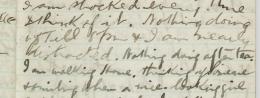 I am shocked every time
I think of it. Nothing doing
till 5pm & I am nearly
distracted. Nothing doing after tea.
I am walking Home, thinking of
& smiling when a nice looking